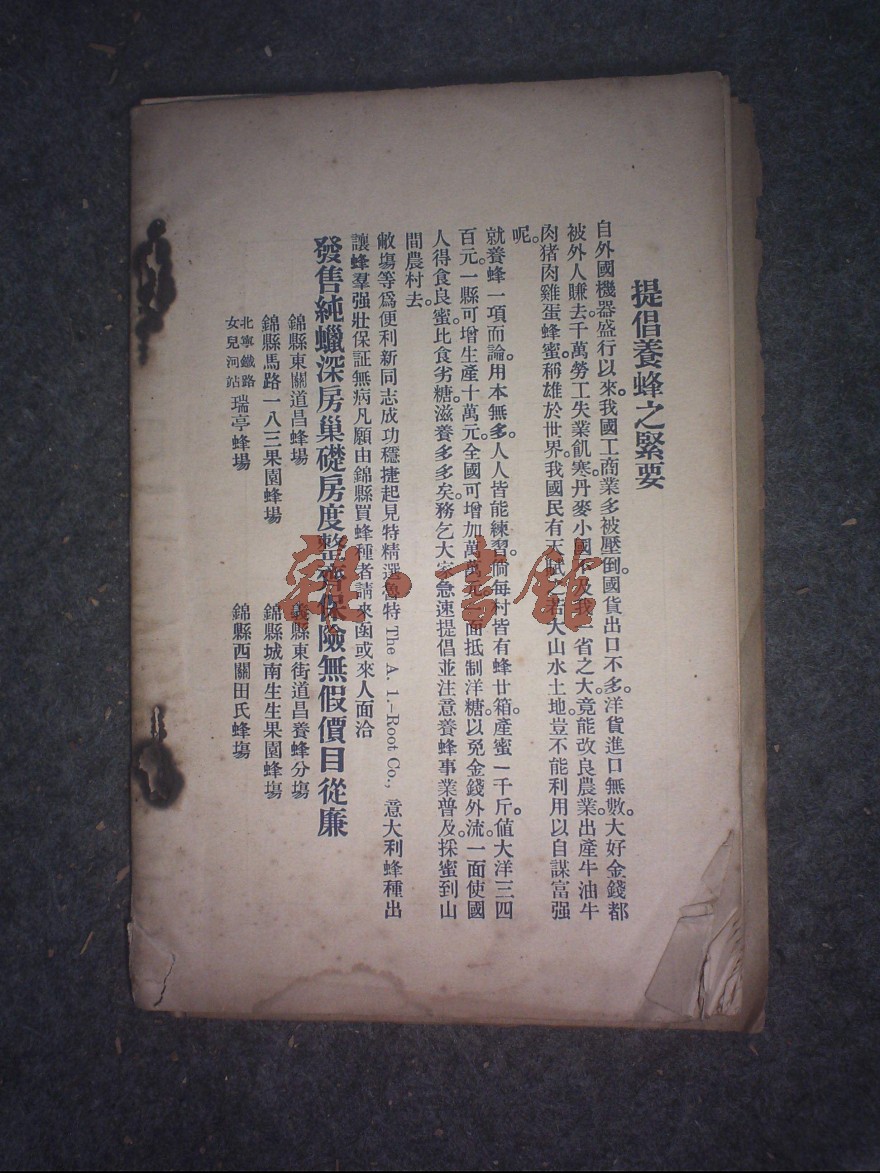 提倡養蜂之緊要
自外國機器盛行以來。我國工商業多被壓倒。國貨出口不多。洋貨進口無數。大好金錢都
被外人賺去。千萬勞工失業飢寒。丹麥小國不及我 省之大。竟能改良農業。出產牛油牛
肉猪肉雞蛋蜂蜜。稱雄於世界。我國民有天賦 若大山水土地。豈不能利用以自謀富强
呢。
就養蜂一項而論。用本無多。人人皆能練習。倘每村皆有蜂廿箱。產蜜一千斤。値大洋三四
百元。一縣可增生產十萬元。全國可增加萬萬元。 面抵制洋糖。以免金錢外流。一面使國
人得食良蜜。比食劣糖。滋養多多矣。務乞大家急速提倡並注意養蜂事業普及。採蜜到山
間農村去。
敝塲等爲便利新同志成功穩捷起見特精選魯特 The A. 1.-Root Co., 意大利蜂種出
讓蜂羣强壯保証無病凡願由錦縣買蜂種者請來函或來人面洽
發售純蠟深房巢礎房度整齊保險無假價目從廉
錦縣東關道昌蜂塲
義縣東街道昌養蜂分塲
錦縣馬路一八三果園蜂塲
錦縣城南生生果園蜂塲
北寧鐵路女兒河站 瑞亭蜂塲
錦縣西關田氏蜂塲
雜·書館